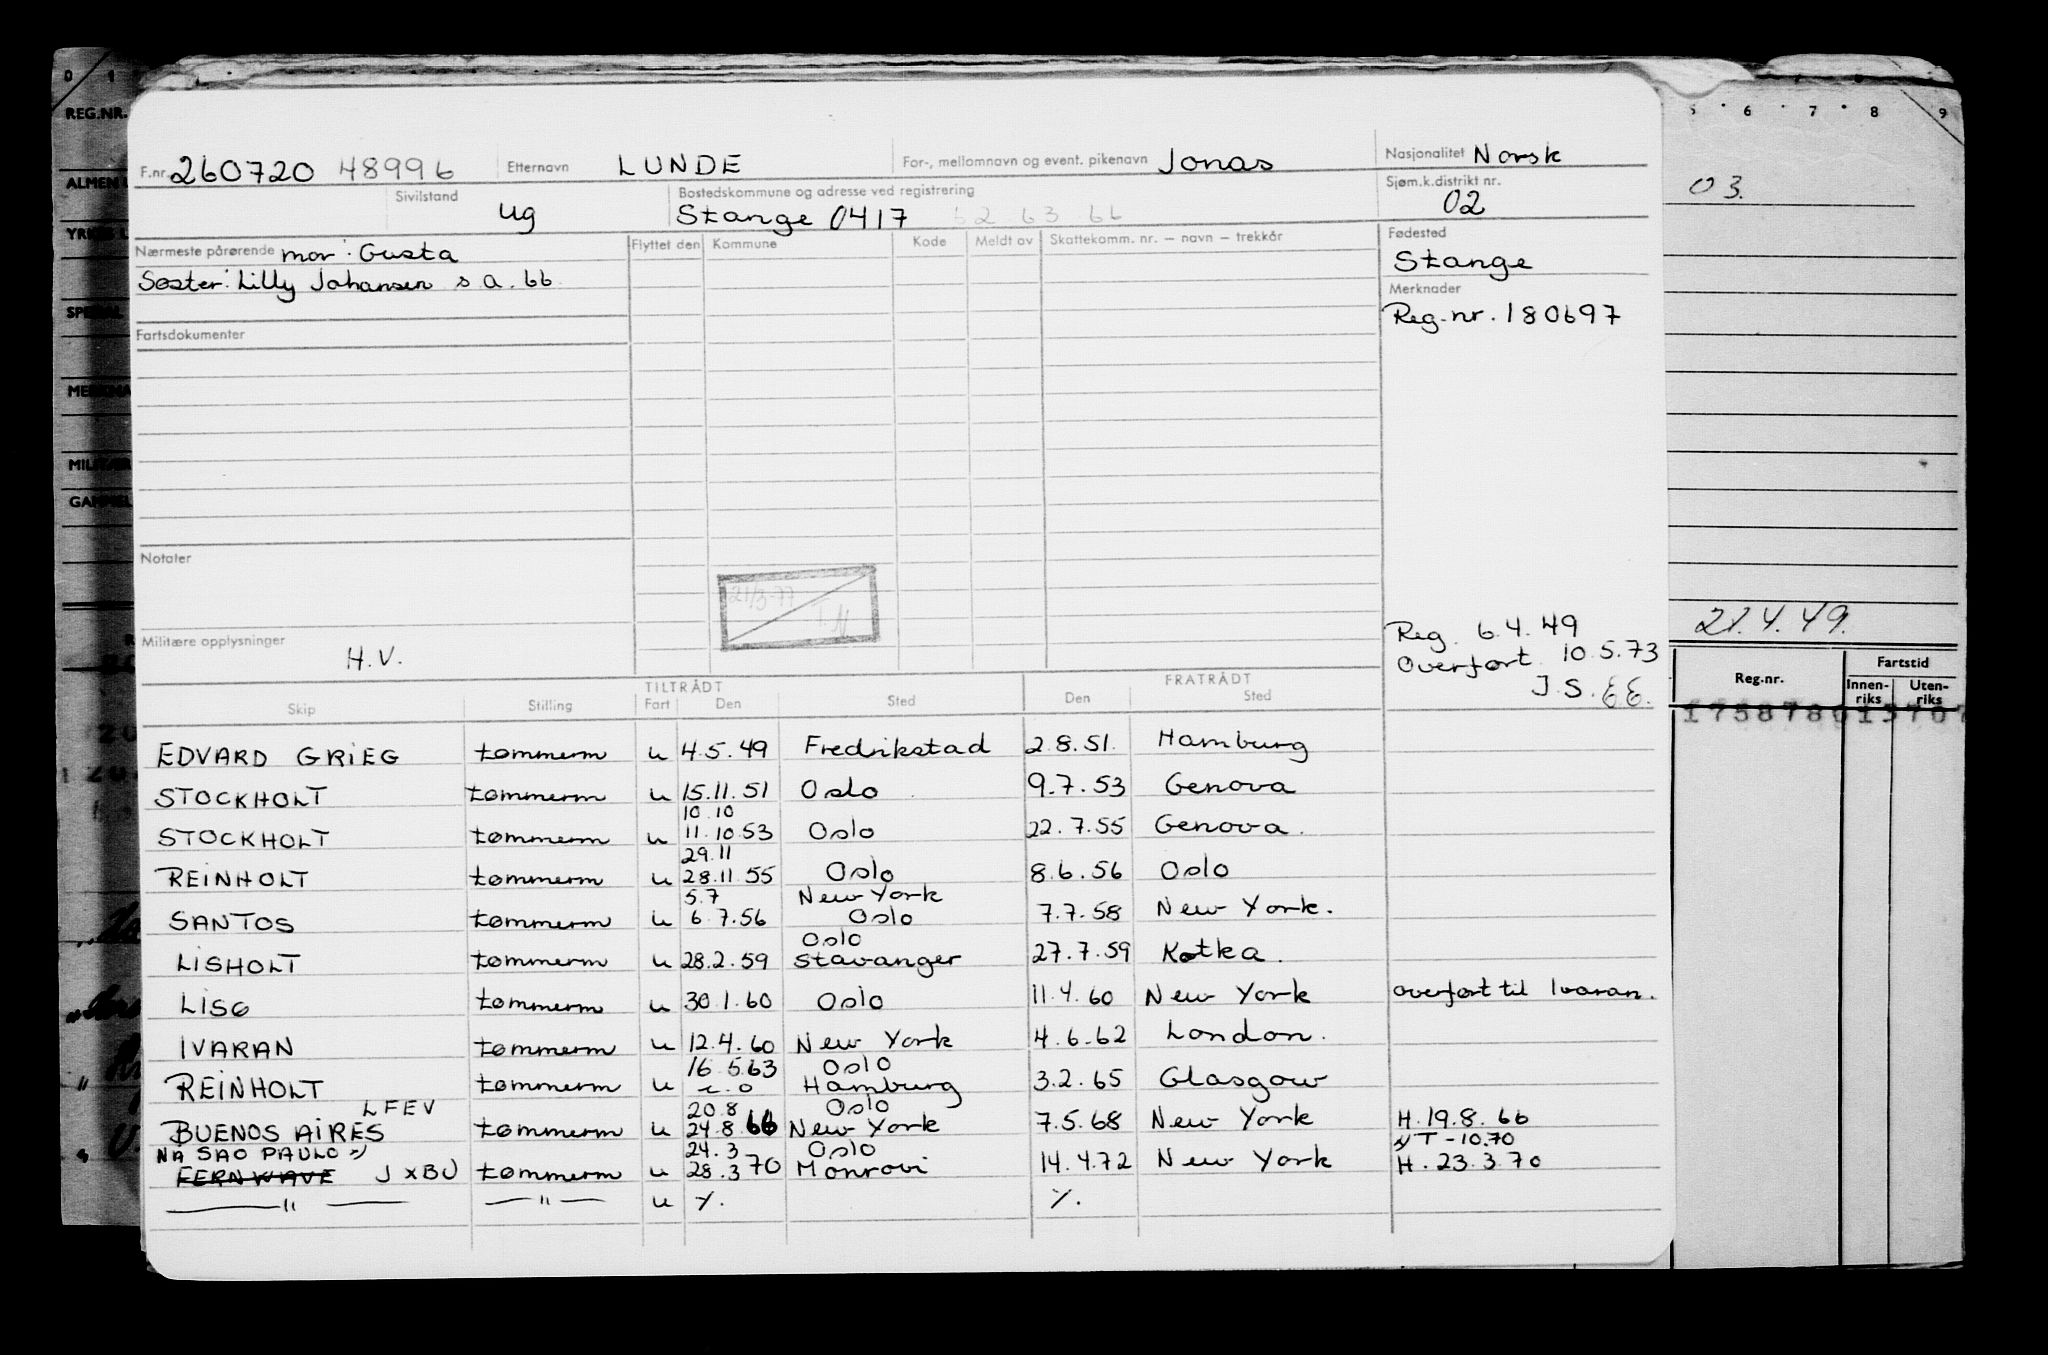 F.nr. 260720 48996 Etternavn LUNDE For-, mellomnavn og event. pikenavn Jonas Nasjonalitet Norsk
Sivilstand ug Bostedskommune og adresse ved registrering Stange 0417 52 63 66 Sjøm.k.distrikt nr. 02
Nærmeste pårørende mor: Gusta Flyttet den Kommune Kode Meldt av Skattekomm. nr. – navn – trekkår Fødested
Søster: Lilly Johansen s.a. 66 Stange
Merknader
Reg.nr. 180697
Fartsdokumenter
Notater
21/3-77
Militære opplysninger H.V.
Reg. 6.4.49
Overført 10.5.73
J.S.
TILTRÅDT FRATRÅDT
Skip Stilling Fart Den Sted Den Sted
EDVARD GRIEG tømmerm u 4.5.49 Fredrikstad 2.8.51. Hamburg
STOCKHOLT tømmerm u 15.11.51 Oslo 9.7.53 Genova
10.10
STOCKHOLT tømmerm u 11.10.53 Oslo 22.7.55 Genova.
29.11
REINHOLT tømmerm u 28.11.55 Oslo 8.6.56 Oslo
5.7 New York
SANTOS tømmerm u 6.7.56 Oslo 7.7.58 New York.
Oslo
LISHOLT tømmerm u 28.2.59 Stavanger 27.7.59 Kotka.
LISG tømmerm u 30.1.60 Oslo 11.4.60 New York overført til Ivaran.
IVARAN tømmerm u 12.4.60 New York 4.6.62 London.
16.5.63 Oslo
REINHOLT tømmerm u Hamburg 3.2.65 Glasgow
LFEV 20.8 Oslo
BUENOS AIRES tømmerm u 24.8.66 New York 7.5.68 New York H.19.8.66
NÅ SAO PAULO 24.3 Oslo T-10.70
FERNWAVE JXBU tømmerm u 28.3 70 Monrovi 14.4.72 New York H.23.3.70
—"— —"— u %. %.
0 1
REG.NR.
5 6 7 8 9
03.
21.4.49.
Reg.nr. Fartstid
Innenriks Utenriks